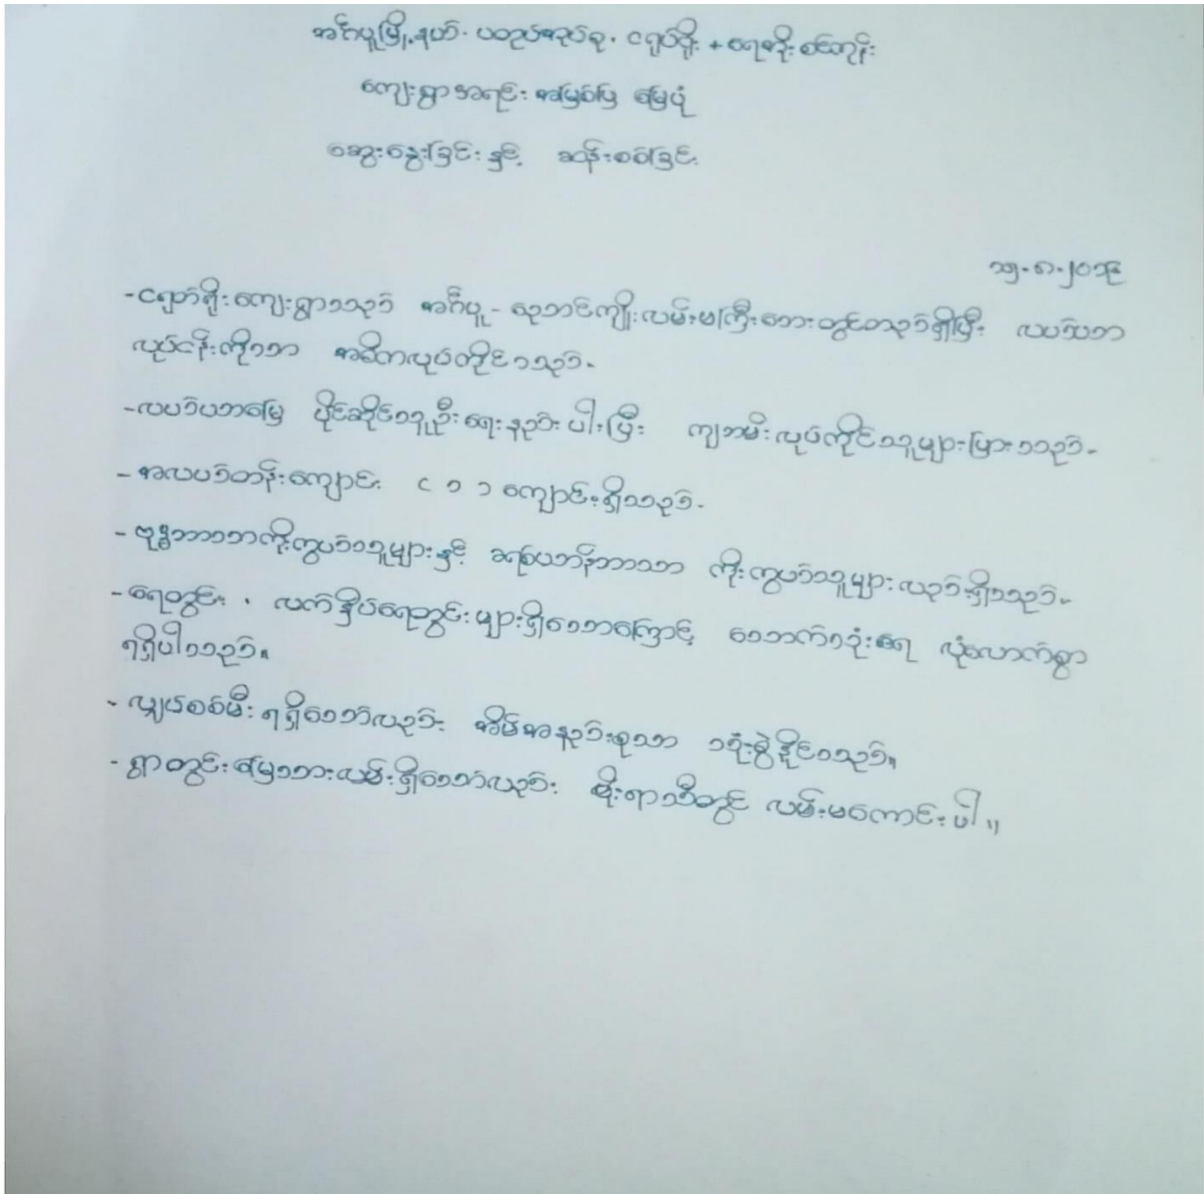 အင်္ဂပူမြို့နယ်၊ ပတုပ်အုပ်စု၊ ငရုပ်ရိုး + ရေအိုးစင်ကုန်း
ကျေးရွာအရင်းအမြစ်ပြ မြေပုံ
ဆွေးနွေးခြင်းနှင့် ဆန်းစစ်ခြင်း
- ငရုတ်ရိုးကျေးရွာသည် အင်္ဂပူ - သုဘင်ကျိုးလမ်းမကြီးဘေးတွင်တည်ရှိပြီး လယ်ယာ
လုပ်ငန်းကိုသာ အဓိကလုပ်ကိုင်သည်-
- လယ်ယာမြေ ပိုင်ဆိုင်သူဦးရေနည်းပါးပြီး ကျဘမ်းလုပ်ကိုင်သူများပြားသည်-
- အလယ်တန်းကျောင်း ( ၁ ) ကျောင်းရှိသည်-
- ဗုဒ္ဓဘာသာကိုးကွယ်သူများနှင့် ခရစ်ယာန်ဘာသာ ကိုးကွယ်သူများလည်းရှိသည်-
- ရေတွင်း၊ လက်နှိပ်ရေတွင်းများရှိသောကြောင့် သောက်သုံးရေ လုံလောက်စွာ
ရရှိပါသည်။
- လျှပ်စစ်မီးရရှိသော်လည်း အိမ်အနည်းစုသာ သုံးစွဲနိုင်သည်။
- ရွာတွင်းမြေသားလမ်းရှိသော်လည်း မိုးရာသီတွင် လမ်းမကောင်းပါ။